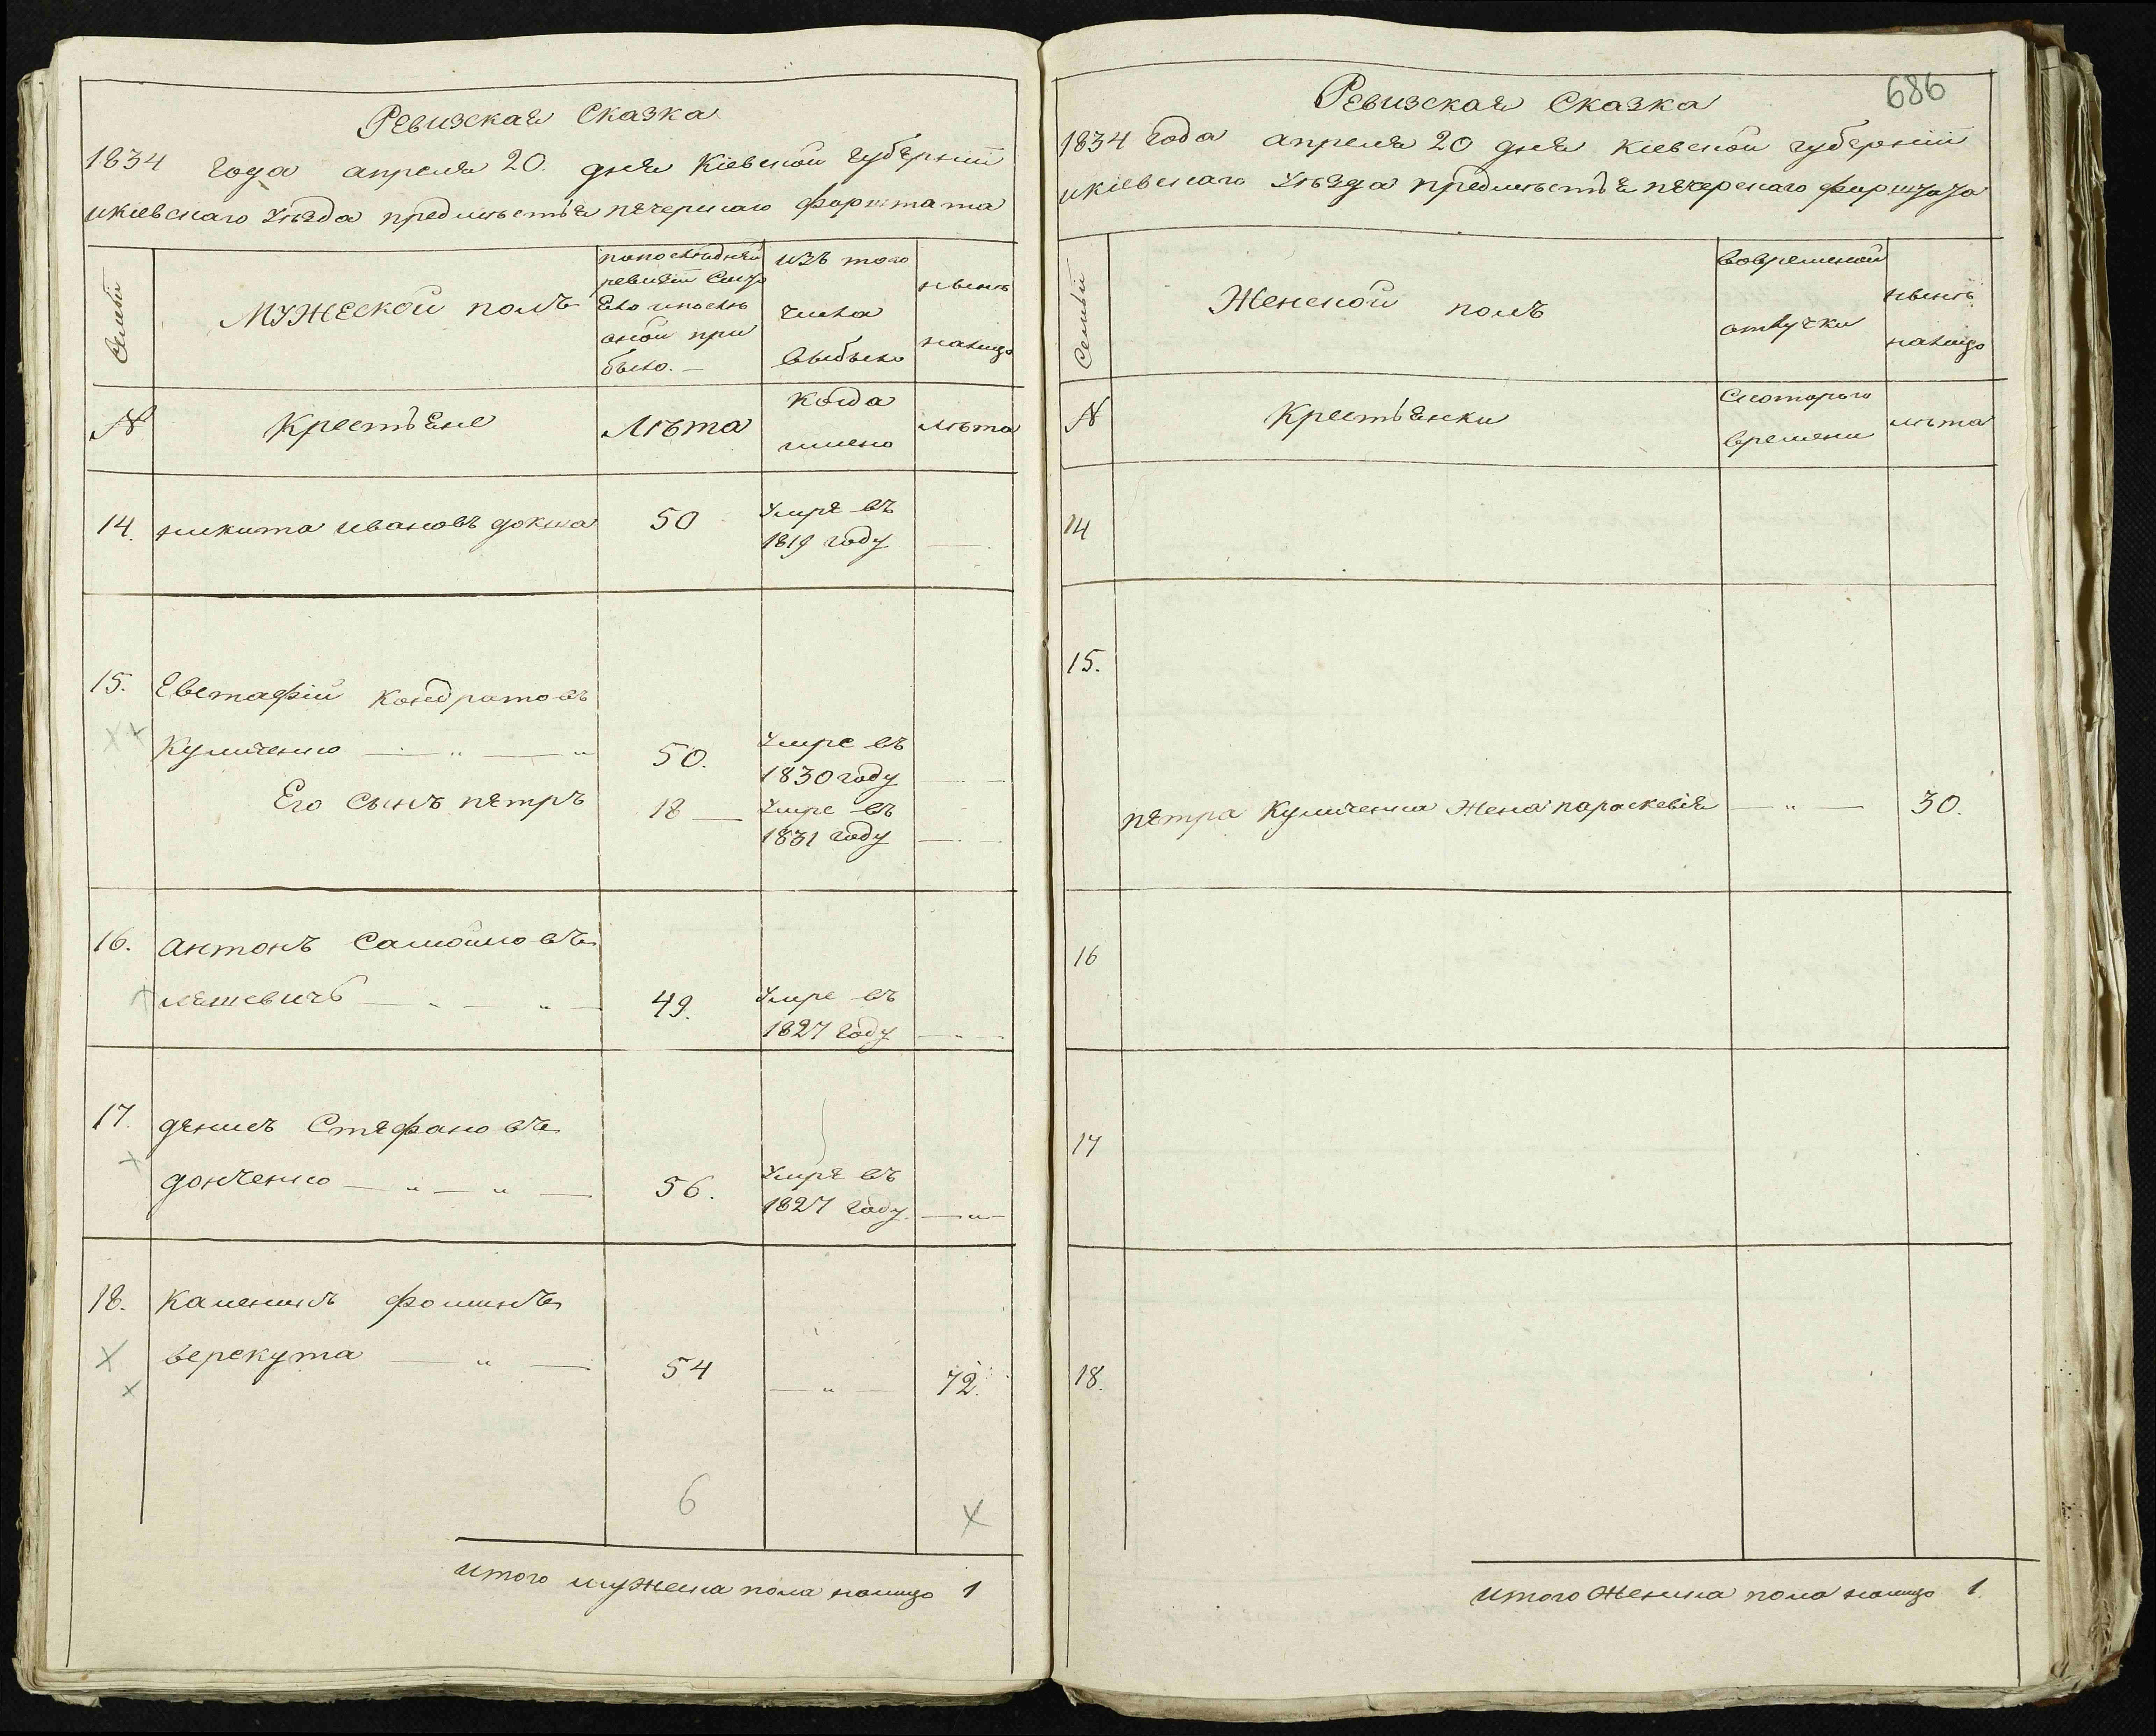 Ревизская Сказка
1834 года апреля 20. дня Кіевской губерніи
икіевскаго уѣзда предмѣстья печерскаго форштата
Семьи
мужеской полъ
попоследней
ревизіи Сост
було ипосль
оной при
было. —
изъ того
числа
выбыло
нынѣ
налицо
N
Крестьяне
лѣта
когда
имено
лѣта
14. никита ивановъ докша 50 умре въ
1819 году —
15. Евстафій Кондратовъ
Куличенко — „ — „ 50. умре въ
1830 году —
Его Сынъ петръ 18 — умре въ
1831 году —
16. антонъ Самойловъ
лешевичъ — „ — „ — 49. умре въ
1827 году —
17. денисъ Стефановъ
донченко — „ — „ — 56. умре въ
1827 году. — „ —
18. Каленикъ фоминъ
веркута — „ — 54 — „ — 72.
6
итого мужеска пола налицо 1
686
Ревизская Сказка
1834 года апреля 20 дня кіевской губерніи
икіевскаго уѣзда предмѣстья печерскаго форштата
Семьи
Женской полъ
вовременной
отлучки
нынѣ
налицо
N
Крестьянки
Скоторого
времени
лѣта
14
15.
петра Куличенка жена параскевія — „ — 30.
16
17
18.
итого женска пола налицо 1.